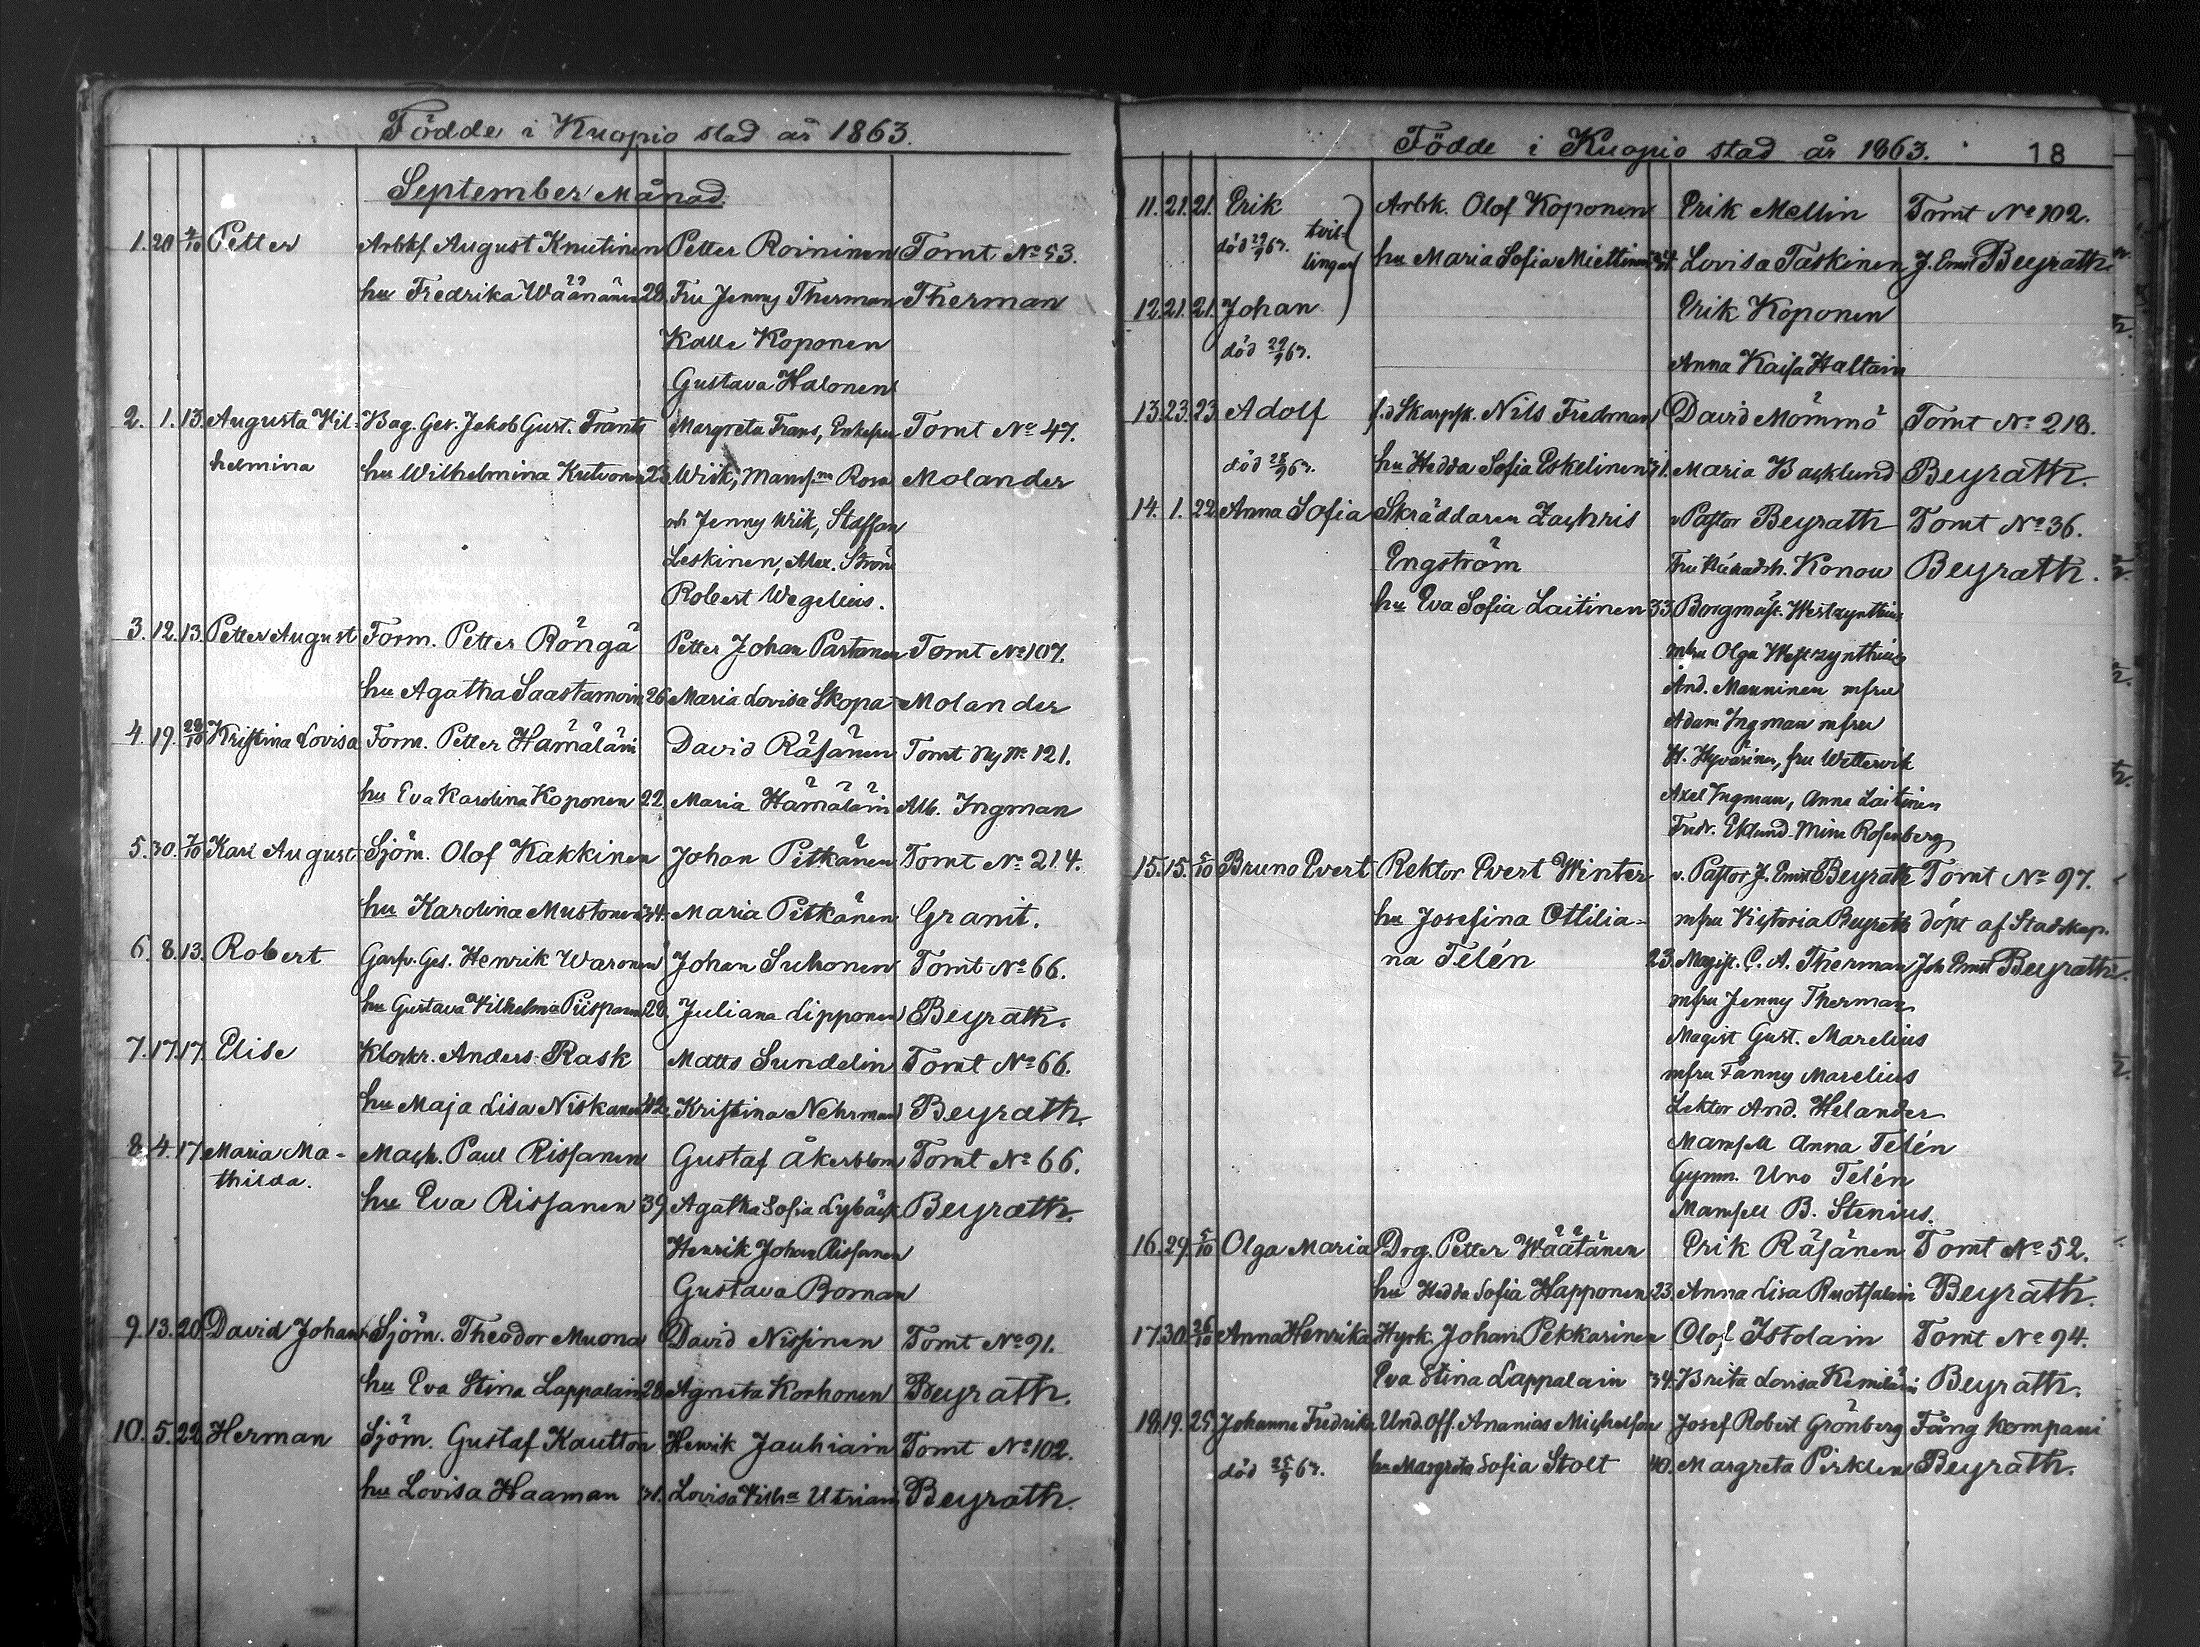 Födde i Kuopio stad år 1863.
September Månad
1. 20 4/10 Petter Arbkf August Knutinen Petter Roininen Tomt No 53.
hu Fredrika Wäänänen 28. Fru Jenny Therman Therman
Kalle Koponen
Gustava Halonen
2. 1. 13. Augusta Vil- Bag. Ges. Jakob Gust. Frants Margreta Frans, Enkefru Tomt No 47.
helmina hu Wilhelmina Kutvonen 23. Wiik, Mamsn Rosa Molander
och Jenny Wiik, Staffan
Leskinen, Alex. Ström
Robert Wegelius.
3. 12. 13. Petter August Form. Petter Röngä Petter Johan Partanen Tomt No 107.
hu Agatha Saastamoin 26 Maria Lovisa Skopa Molander
4. 19. Kristina Lovisa Form. Petter Hämäläin David Räsänen Tomt Ny No 121.
hu Eva Karolina Koponen 22. Maria Hämäläin Alb. Ingman
5. 30. Karl August Sjöm. Olof Kakkinen Johan Pitkänen Tomt No 214.
hu Karolina Mustonen 34. Maria Pitkänen Granit.
6. 8. 13. Robert Garfv. Ges. Henrik Waronen Johan Suhonen Tomt No 66.
hu Gustava Vilhelma Piispanen 28. Juliana Lipponen Beyrath.
7. 17. 17. Elise Klockr. Anders Rask Matts Sundelin Tomt No 66.
hu Maja Lisa Niskanen 42. Kristina Nehrman Beyrath.
8. 4. 17. Maria Ma- Mach. Paul Rissanen Gustaf Åkerblom Tomt No 66.
thilda. hu Eva Rissanen 39 Agatha Sofia Lybäck Beyrath.
Henrik Johan Rissanen
Gustava Boman
9. 13. 20. David Johan Sjöm. Theodor Muona David Nissinen Tomt No 91.
hu Eva Stina Lappalain 28. Agneta Korhonen Beyrath.
10. 5. 22. Herman Sjöm. Gustaf Kautton Henrik Jauhiain Tomt No 102.
hu Lovisa Haaman 31. Lovisa Vilha Utriain Beyrath.
Födde i Kuopio stad år 1863. 18
11. 21. 21. Erik Arbk. Olof Koponen Erik Mellin Tomt No 102.
död 29/9 63. tvil-
lingar hu Maria Sofia Miettinen Lovisa Taskinen J. Ernst Beyrath
12. 21. 21. Johan Erik Koponen
död 29/9 63. Anna Kaisa Haltain
13. 23. 23. Adolf f.d Skarpsk. Nils Fredman David Mömmö Tomt No 218.
död 28/9 63. hu Hedda Sofia Eskelinen 31. Maria Backlund Beyrath.
14. 1. 22. Anna Sofia Skräddaren Zachris v Pastor Beyrath Tomt No 36.
Engström Fru Konow Beyrath.
hu Eva Sofia Laitinen 33. Borgmäst. Westzynthius
mfru Olga Westzynthius
And. Manninen mfru
Adam Ingman mfru
H. Hyvärinen, fru Wetterwik
Axel Ingman, Anna Laitinen
Fredr. Eklund. Mina Rosenberg
15. 15. 5/10 Bruno Evert Rektor Evert Winter v. Pastor J. Ernst Beyrath Tomt No 97.
hu Josefina Ottilia- mfru Victoria Beyrath döpt af Stadskap.
na Telén 23. Magist. C. A. Therman Joh Ernst Beyrath.
mfru Jenny Therman
Magist Gust. Marelius
mfru Fanny Marelius
Lektor And. Helander
Mamsell Anna Telén
Gymn. Uno Telén
Mamsell B. Stenius.
16. 29. 5/10 Olga Maria Drg. Petter Väätänen Erik Räsänen Tomt No 52.
hu Hedda Sofia Happonen 23. Anna Lisa Ruotsalain Beyrath.
17. 30. 26/10 Anna Henrika Hyrk. Johan Pekkarinen Olof Istolain Tomt No 94.
Eva Stina Lappalain 34. Brita Lovisa Kemiläin Beyrath.
18. 19. 25. Johanna Fredrika Und. Off. Ananias Michelson Josef Robert Grönberg Fång kompani
död 25/9 63. hu Margreta Sofia Stolt 40. Margreta Pirklen Beyrath.